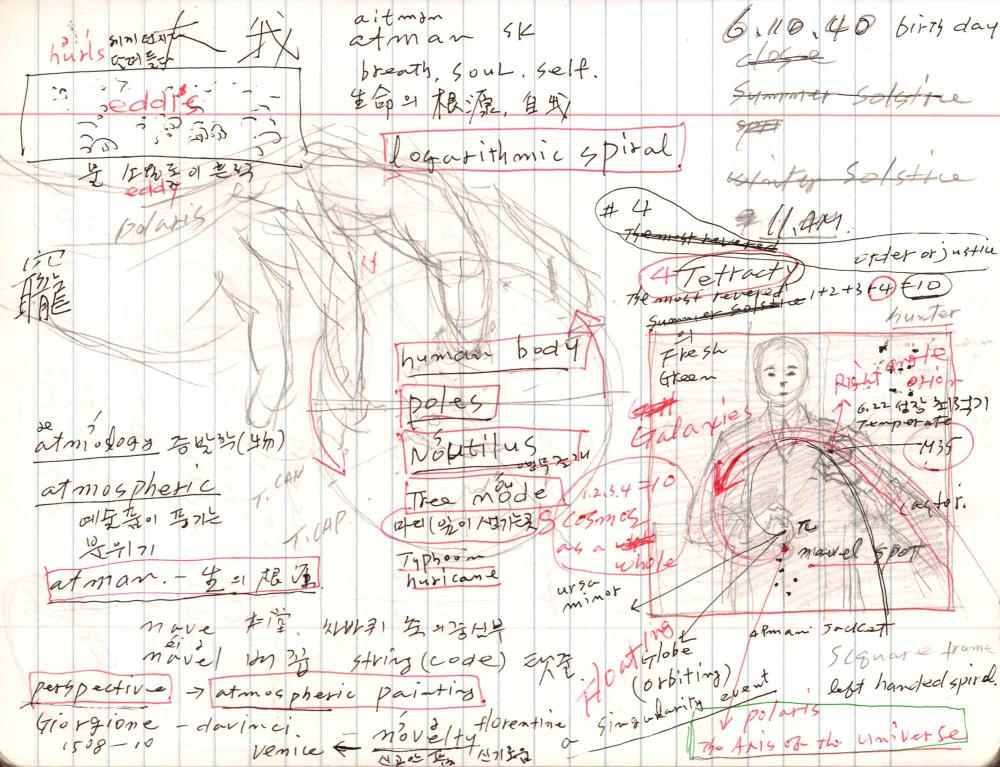 hurls
我
eddies
물 소용돌이 흐름
eddy
polaris
aitman
atman SK
breath, soul, self.
生命의 根源, 自我
logarithmic spiral
6.10.40 birth day
close
Summer Solstice
Solstice
11. AM.
# 4
The most revered
order or justice
4 Tetracty
The most revered 1+2+3+4=10
Summer Solstice
의
Fresh
Green
hunter
Right angle
orion
6.22
Temperate
M35
Castor.
π
navel spot
human body
poles
Noutilus
Tree node
마디(잎이 생기는곳
Typhoon
huricane
Galaxies
1.2.3.4=10
cosmos
as a
whole
T. CAN
T. CAP
atmology 증발학(物)
atmospheric
예술품이 풍기는
분위기
atman. - 生의 根源
nave 本堂. 차바퀴 축의 중심부
navel 배꼽 string (code) 탯줄.
perspective → atmospheric painting
Giorgione - davinci.
1508-10
venice ← novelty florentine
신기로움
ursa
minor
Floating
Globe
(orbiting)
a singularity event
armani Jackett
Scquare frame
left handed spiral.
polaris
The Axis of the universe